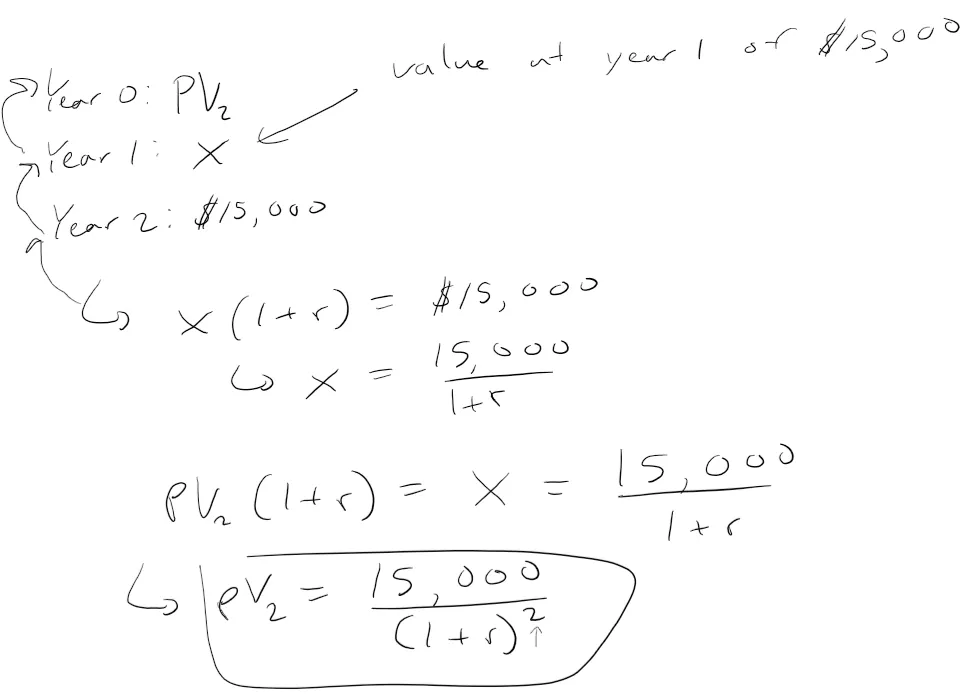 value at year 1 of $15,000
Year 0: PV₂
Year 1: X
Year 2: $15,000
x(1+r) = $15,000
↳ x = 15,000/(1+r)
PV₂(1+r) = X = 15,000/(1+r)
↳ PV₂ = 15,000/(1+r)²